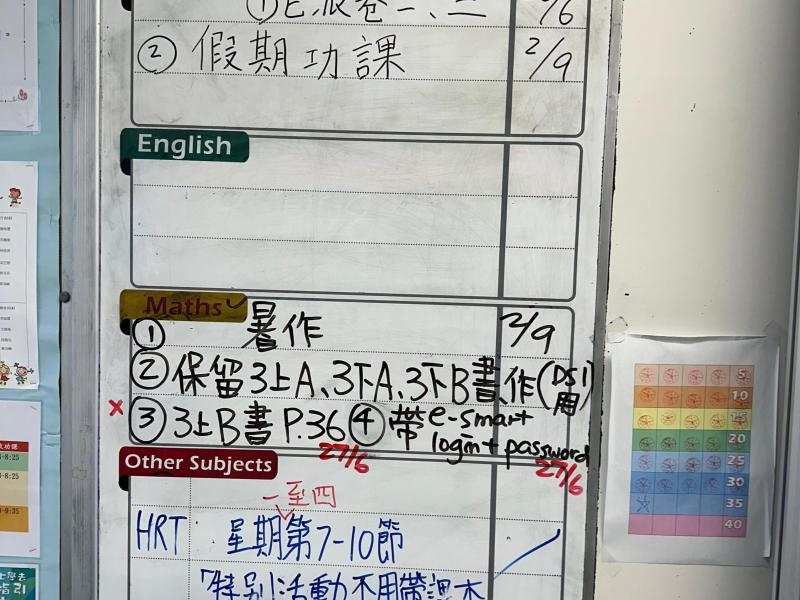 2/6
② 假期功課 2/9
English
Maths
① 暑作 2/9
② 保留3上A、3下A、3下B書、作(DSI用)
③ 3上B書 P.36 ④ 帶 e-smart
login + password
27/6 27/6
Other Subjects
一至四
HRT 星期第7-10節
「特別活動不用帶課本
5
10
15
20
25
30
35
40